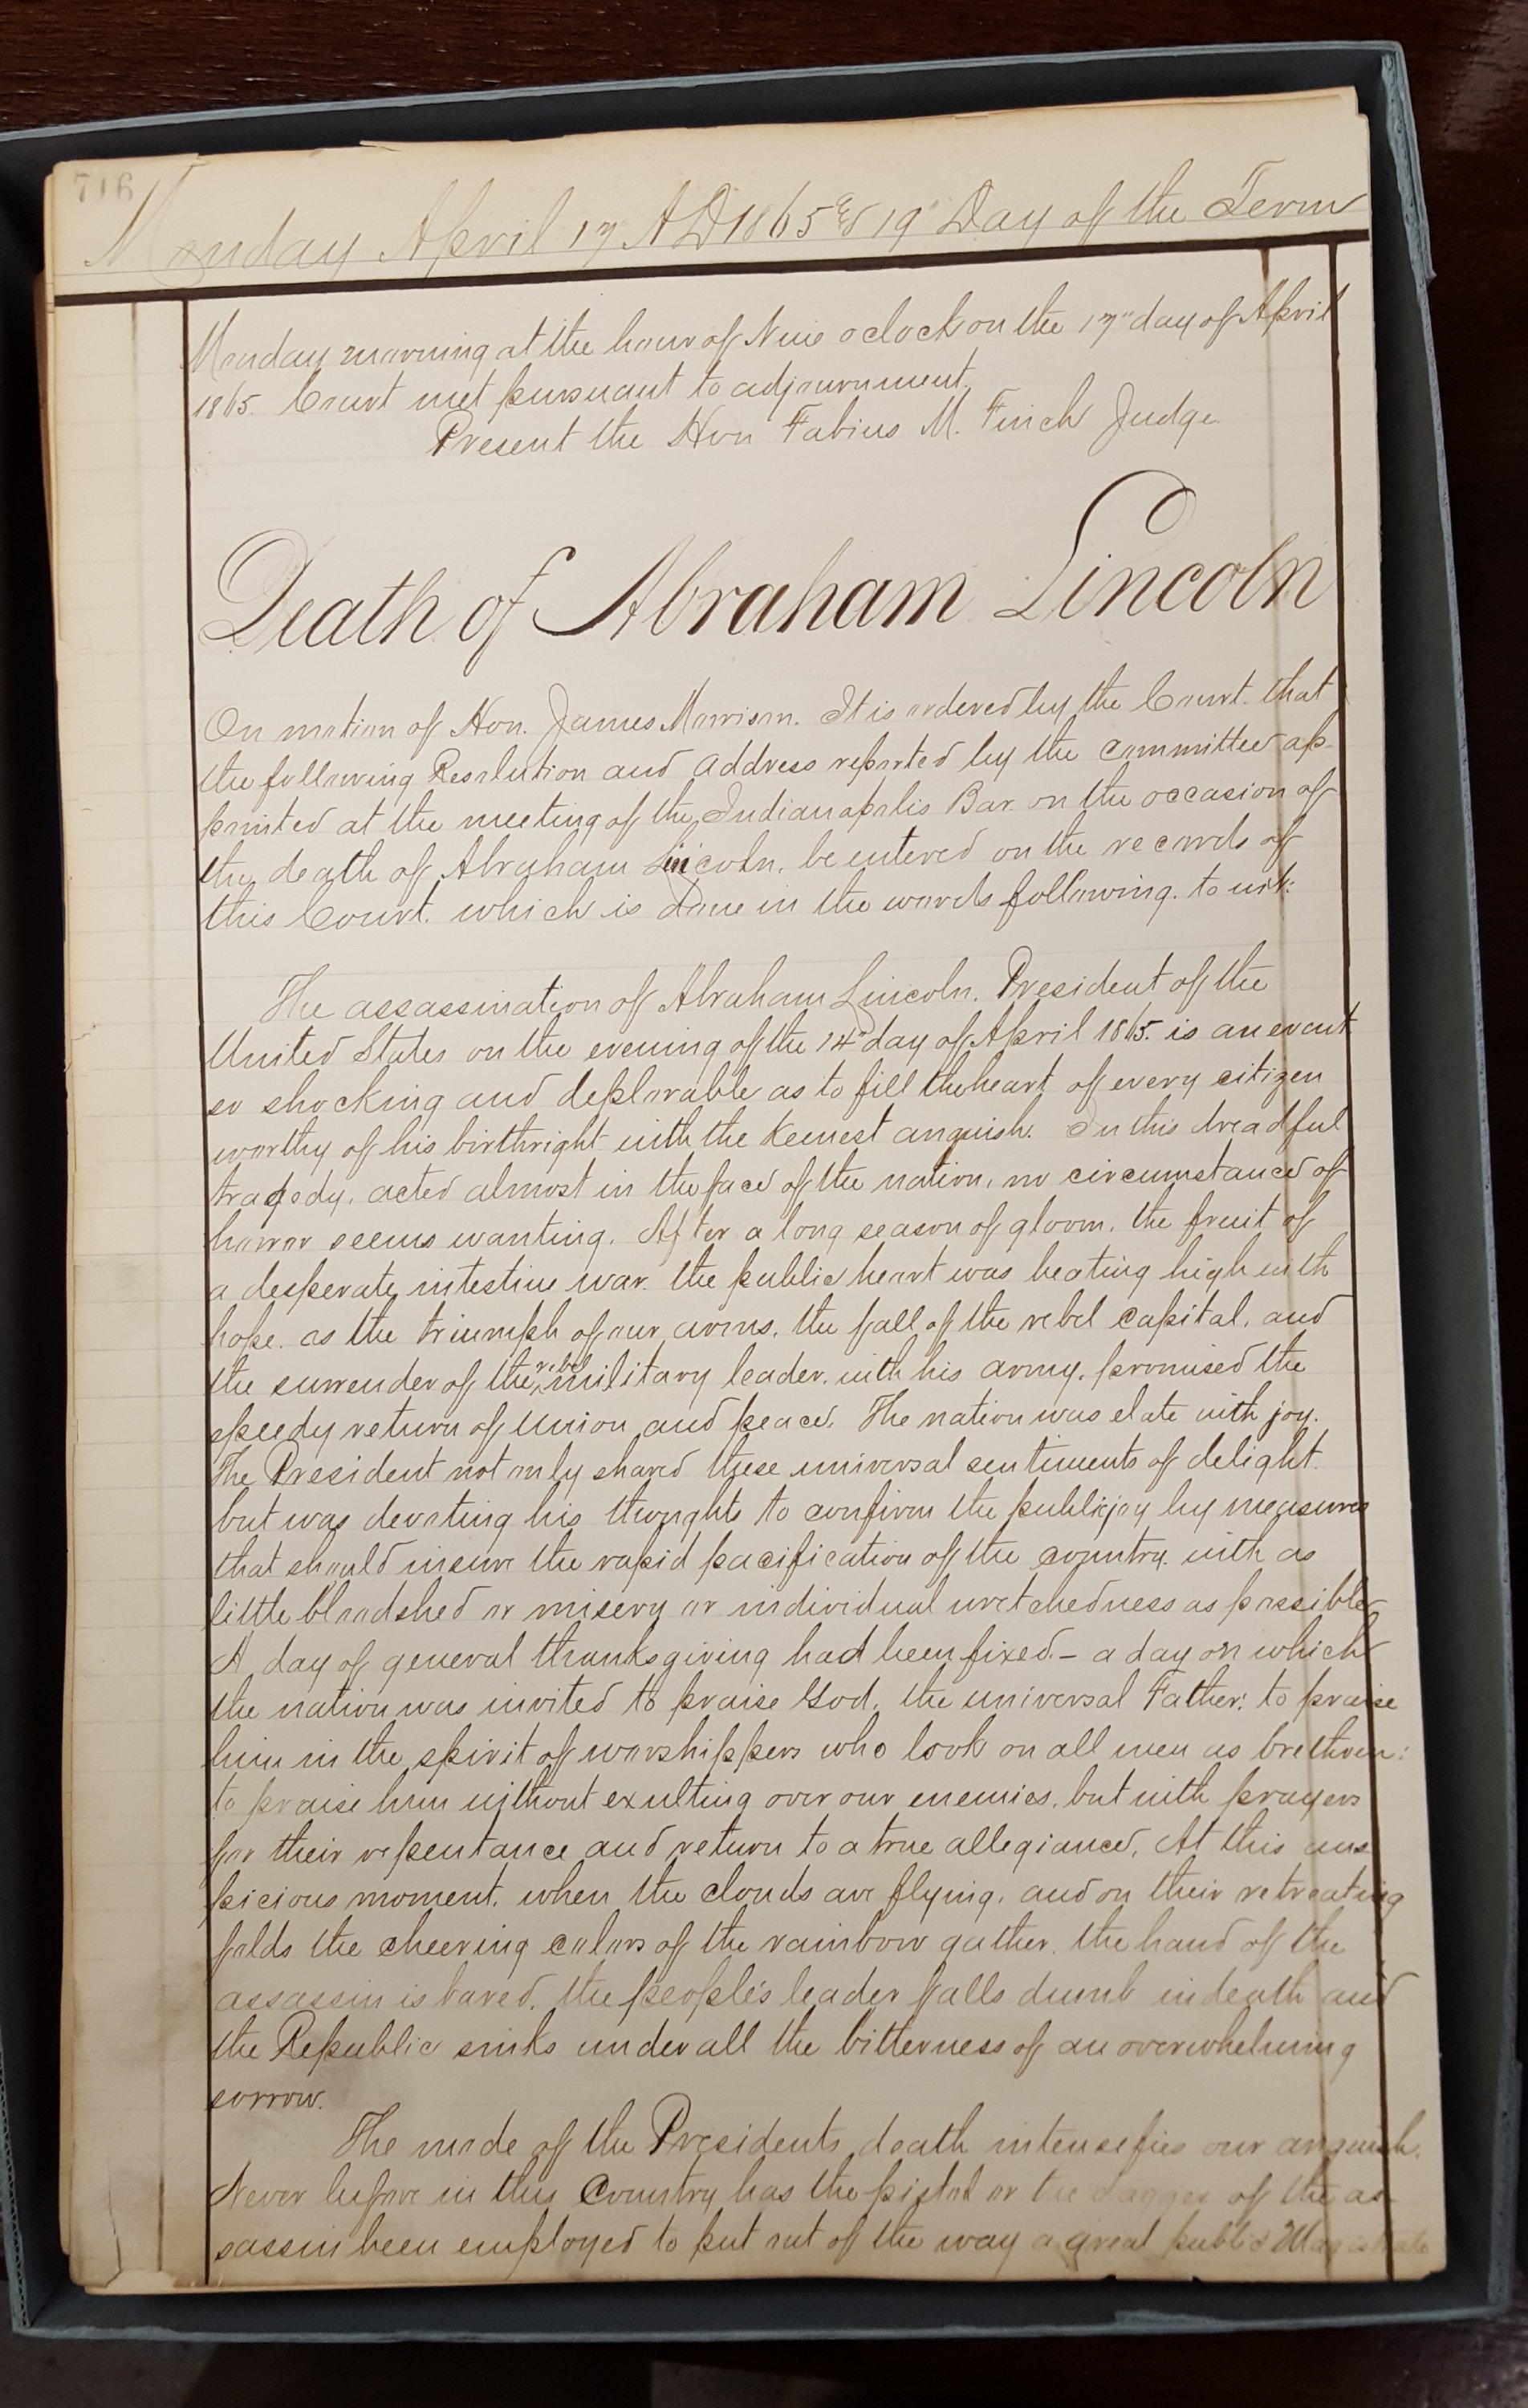 716
Monday April 17" AD 1865 & 19" Day of the Term
Monday morning at the hour of Nine o clock on the 17" day of April
1865. Court met pursuant to adjournment.
Present the Hon Fabius M. Finch Judge.
Death of Abraham Lincoln
On motion of Hon. James Morrison. It is ordered by the Court. that
the following Resolution and address reported by the committee ap-
pointed at the meeting of the Indianapolis Bar on the occasion of
the death of Abraham Lincoln, be entered on the records of
this Court. which is done in the words following. to wit:
The assassination of Abraham Lincoln. President of the
United States on the evening of the 14" day of April 1865. is an event
so shocking and deplorable as to fill the heart of every citizen
worthy of his birthright with the keenest anguish. In this dreadful
tragedy, acted almost in the face of the nation, no circumstance of
horror seems wanting. After a long season of gloom, the fruit of
a desperate intestine war. the public heart was beating high with
hope. as the triumph of our arms, the fall of the rebel capital, and
the surrender of the rebel military leader. with his army, promised the
speedy return of Union and peace. The nation was elate with joy.
The President not only shared these universal sentiments of delight.
but was devoting his thoughts to confirm the public joy by measures
that should insure the rapid pacification of the country. with as
little bloodshed or misery or individual wretchedness as possible
A day of general thanksgiving had been fixed. - a day on which
the nation was invited to praise God, the universal Father: to praise
him in the spirit of worshippers who look on all men as brethren:
to praise him without exulting over our enemies, but with prayers
for their repentance and return to a true allegiance. At this aus
picious moment, when the clouds are flying, and on their retreating
folds the cheering colors of the rainbow gather. the hand of the
assassin is bared. the people's leader falls dumb in death and
the Republic sinks under all the bitterness of an overwhelming
sorrow.
The mode of the Presidents death intensefies our anguish.
Never before in this Country has the pistol or the dagger of the as-
sassin been employed to put out of the way a great public Magistrate